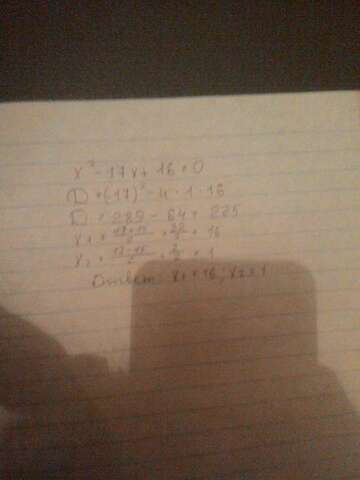 x² - 17x + 16 = 0
D = (17)² - 4 · 1 · 16
D = 289 - 64 = 225
x₁ = 17+15/2 = 32/2 = 16
x₂ = 17-15/2 = 2/2 = 1
Ответ: x₁ = 16, x₂ = 1